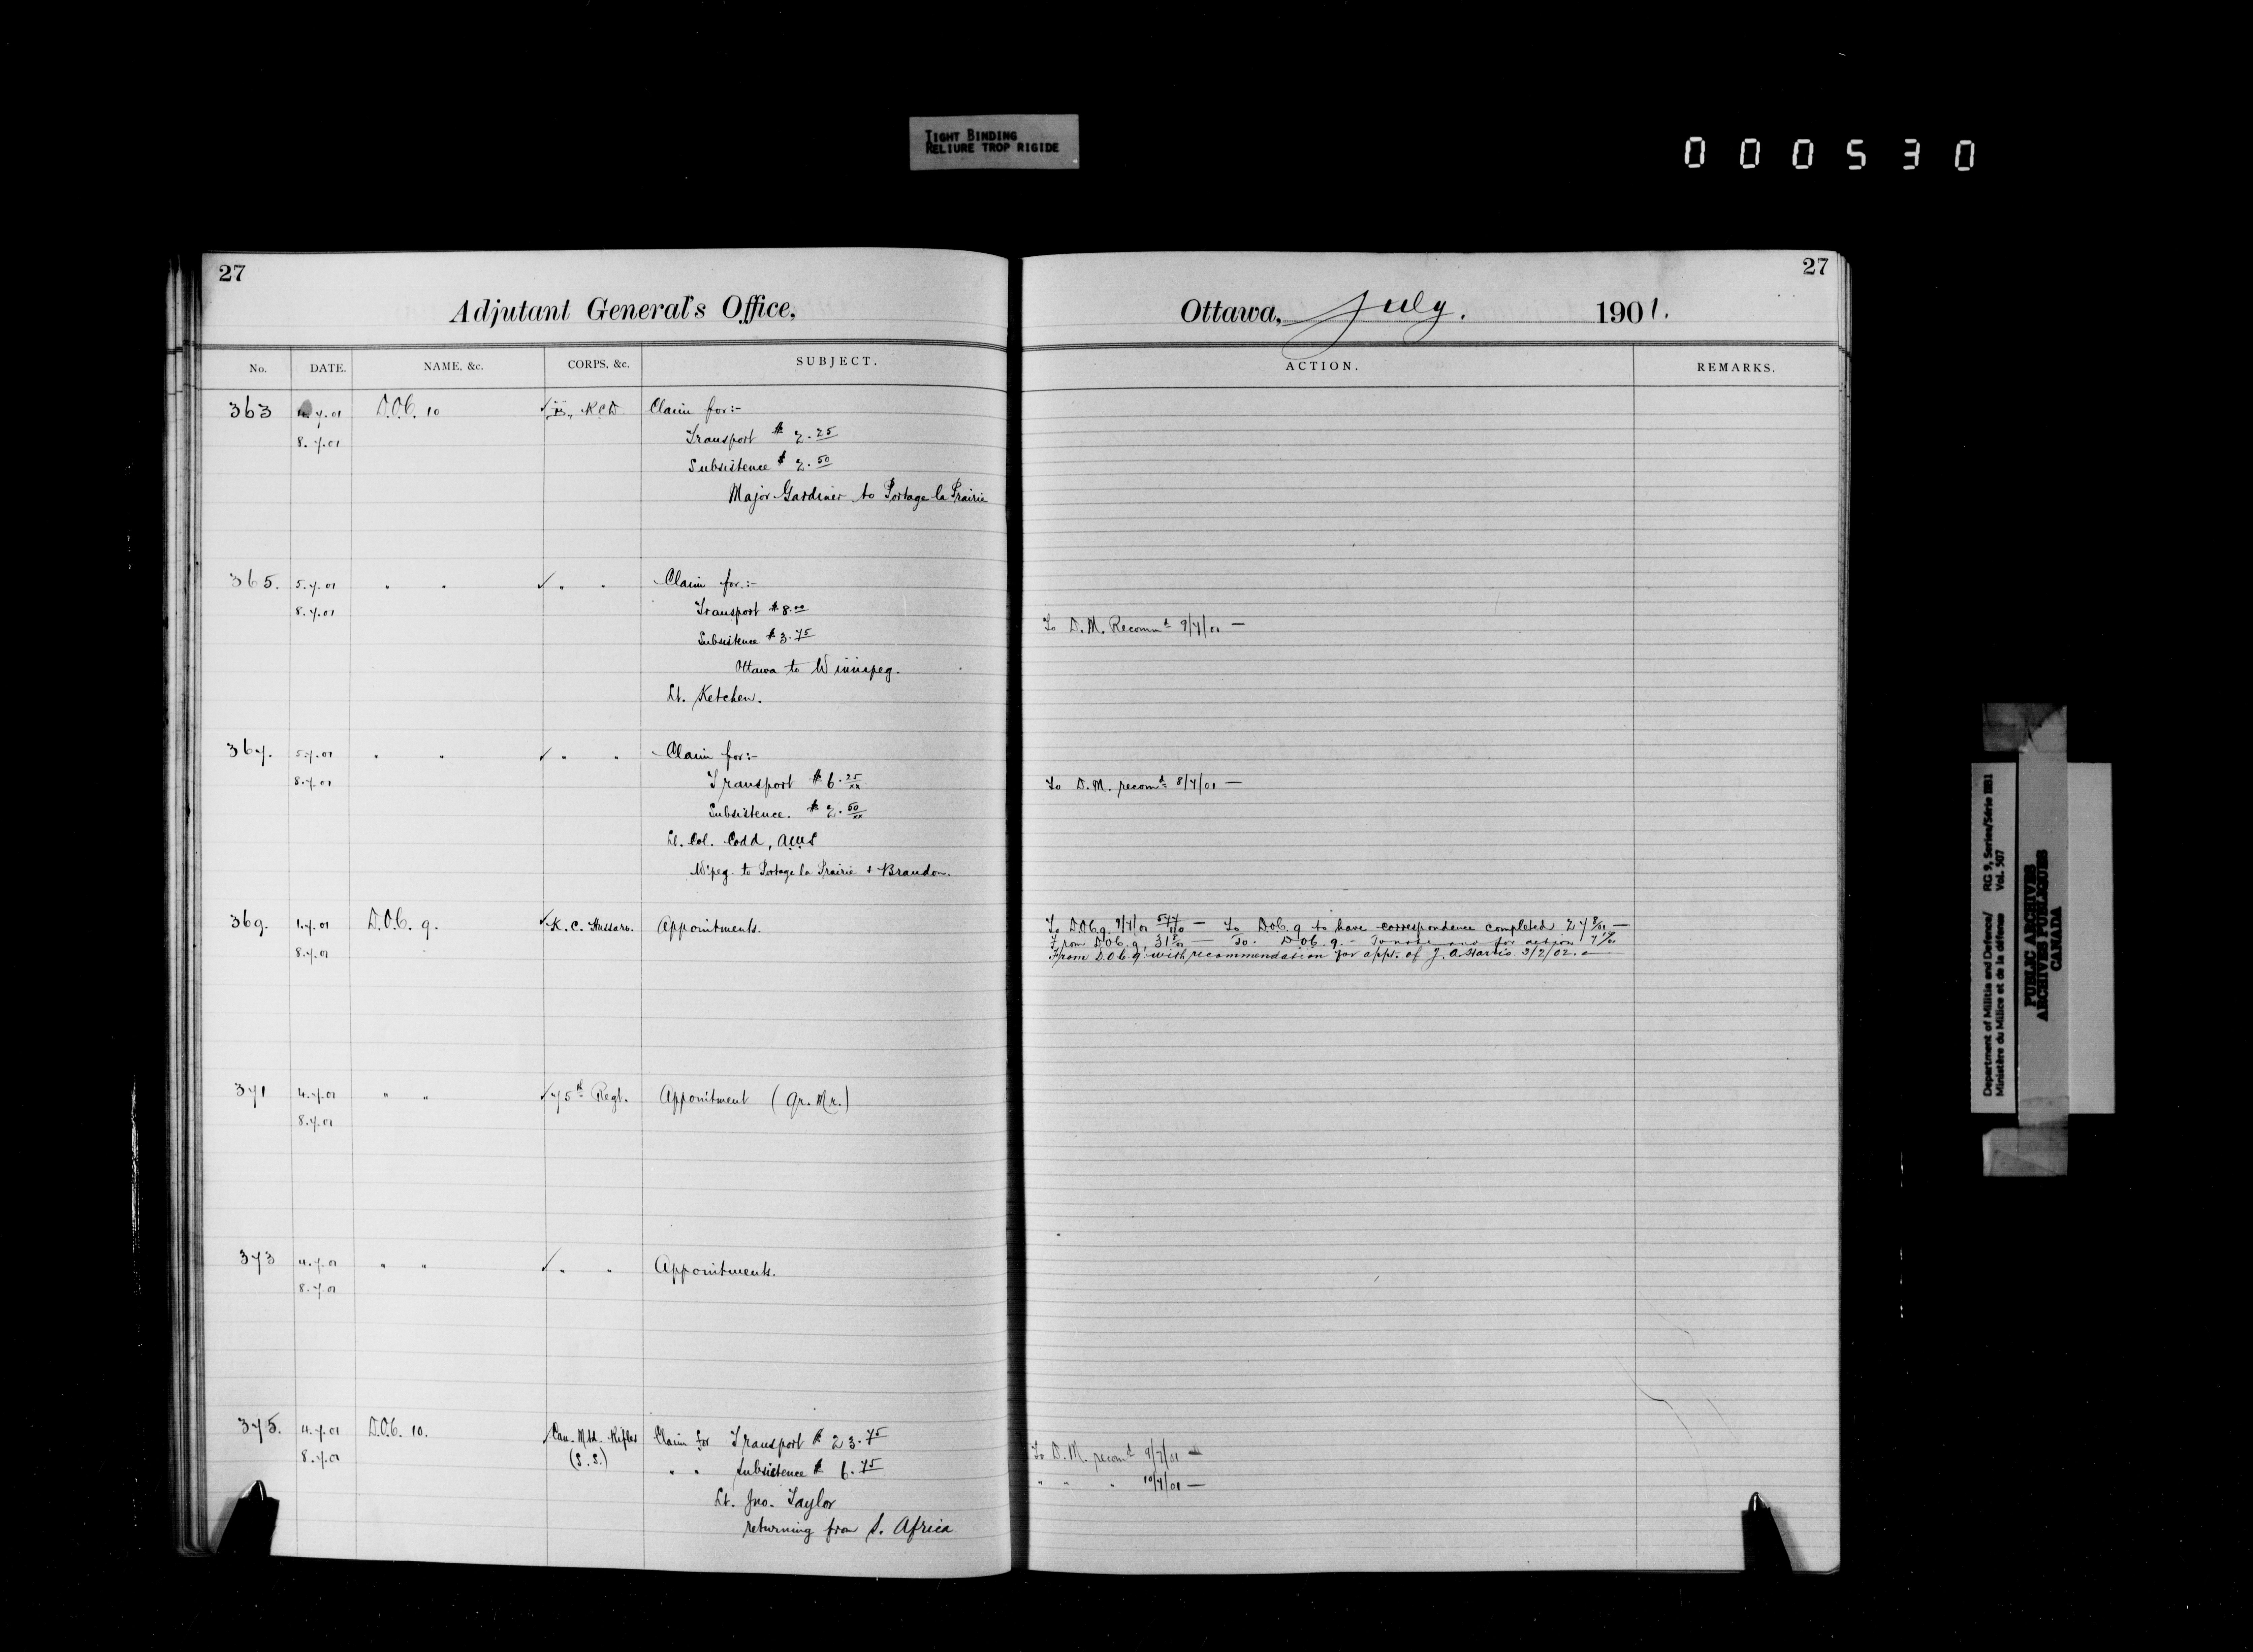 TIGHT BINDING
RELIURE TROP RIGIDE
000530
27
Adjutant General's Office,
No. DATE. NAME, &c. CORPS, &c. SUBJECT.
363 4.7.01 D.O.C. 10 Claim for:-
8.7.01
Transport $ 2.25
Subsistence $ 2.50
Major Gardiner to Portage la Prairie
365. 5.7.01 " " ✓ " " Claim for:-
8.7.01 Transport $ 8.00
Subsistence $ 3.75
Ottawa to Winnipeg.
Lt. Ketchen.
367. 5.7.01 " " ✓ " " Claim for:-
8.7.01 Transport $ 6.25/xx
Subsistence. $ 2.50/xx
Lt. Col. Codd,
W'peg. to Portage la Prairie & Brandon.
369. 1.7.01 D.O.C. 9. ✓ K.C. Hussars. Appointments.
8.7.01
371 4.7.01 " " ✓ 75th Regt. Appointment (Qr. Mr.)
8.7.01
373 4.7.01 " " ✓ " " Appointments.
8.7.01
375. 4.7.01 D.O.C. 10. Can. Mtd. Rifles Claim for Transport $ 23.75
8.7.01 (S.S.) " " Subsistence $ 6.75
Lt. Jno. Taylor
returning from S. Africa
27
Ottawa, July. 1901.
ACTION. REMARKS.
To D.M. Recommd 9/7/01 —
To D.M. recomd 8/7/01 —
To D.O.C. 9 9/7/01 — To D.O.C. 9 to have correspondence completed 27 8/01 —
From D.O.C. 9, 31 8/01 — To D.O.C. 9 - To note and for action
From D.O.C. 9 with recommendation for appt. of J. A. 3/2/02. —
To D.M. recomd 9/7/01 —
" " " 10/7/01 —
Department of Militia and Defence/ RG 9, Series/Série IIB1
Ministère du Milice et de la défense Vol. 507
PUBLIC ARCHIVES
ARCHIVES PUBLIQUES
CANADA